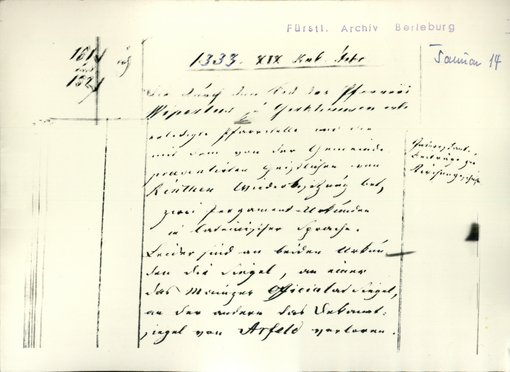 Fürstl. Archiv Berleburg
Januar 14
1333. XIX Kal. Febr
Die durch den Tod des Pfarrers
Wepertus zu
erledigte Pfarrstelle wie die
mit dem von der Gemeinde
präsentierten Geistlichen von
Wiederbesetzung betr.
zwei Pergament-Urkunden
in lateinischer Sprache.
Leider sind an beiden Urkun
den die Siegel, an einer
das Mainzer Officialatsiegel,
an der andern das Dekanat-
siegel von Arfeld verloren.